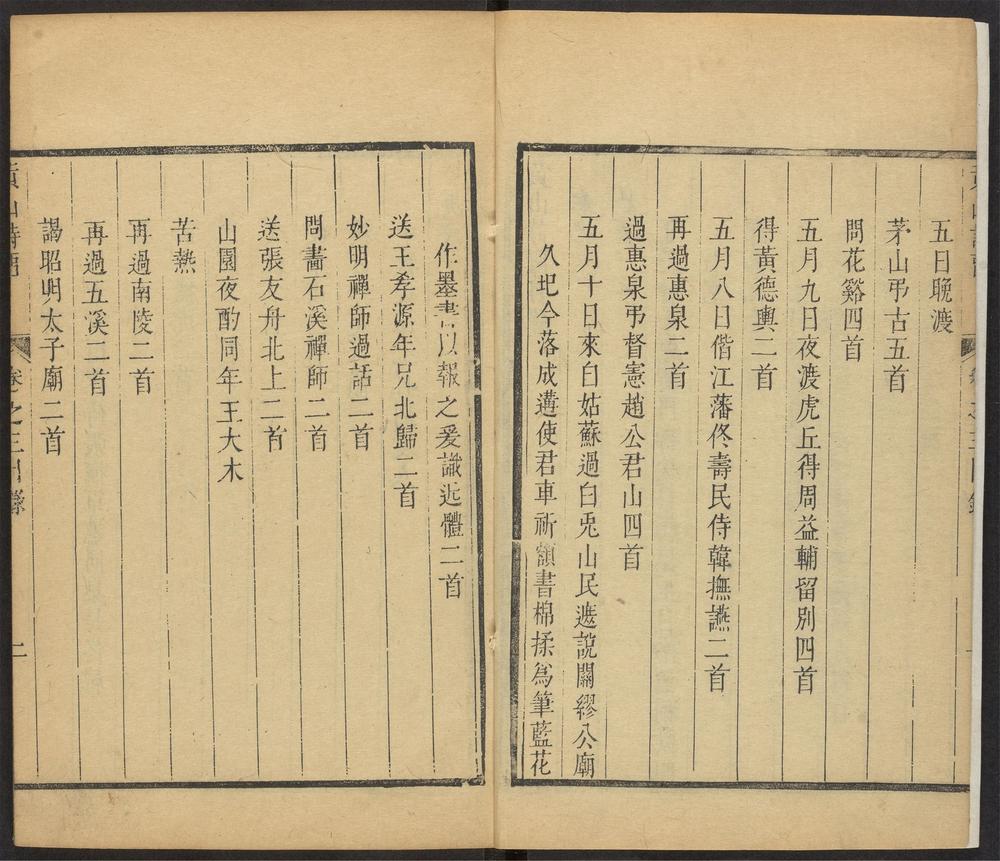 五日晚渡
茅山弔古五首
問花谿四首
五月九日夜渡虎丘得周益輔留別四首
得黃德輿二首
五月八日偕江藩佟壽民侍韓撫讌二首
再過惠泉二首
過惠泉弔督憲趙公君山四首
五月十日來白姑蘇過白兎山民遮說關繆公廟
久圯今落成遘使君車祈額書棉揉爲筆藍花
作墨書以報之爰識近體二首
送王孝源年兄北歸二首
妙明禪師過話二首
問畵石溪禪師二首
送張友舟北上二首
山園夜酌同年王大木
苦熱
再過南陵二首
再過五溪二首
謁昭明太子廟二首
卷之三目錄
二